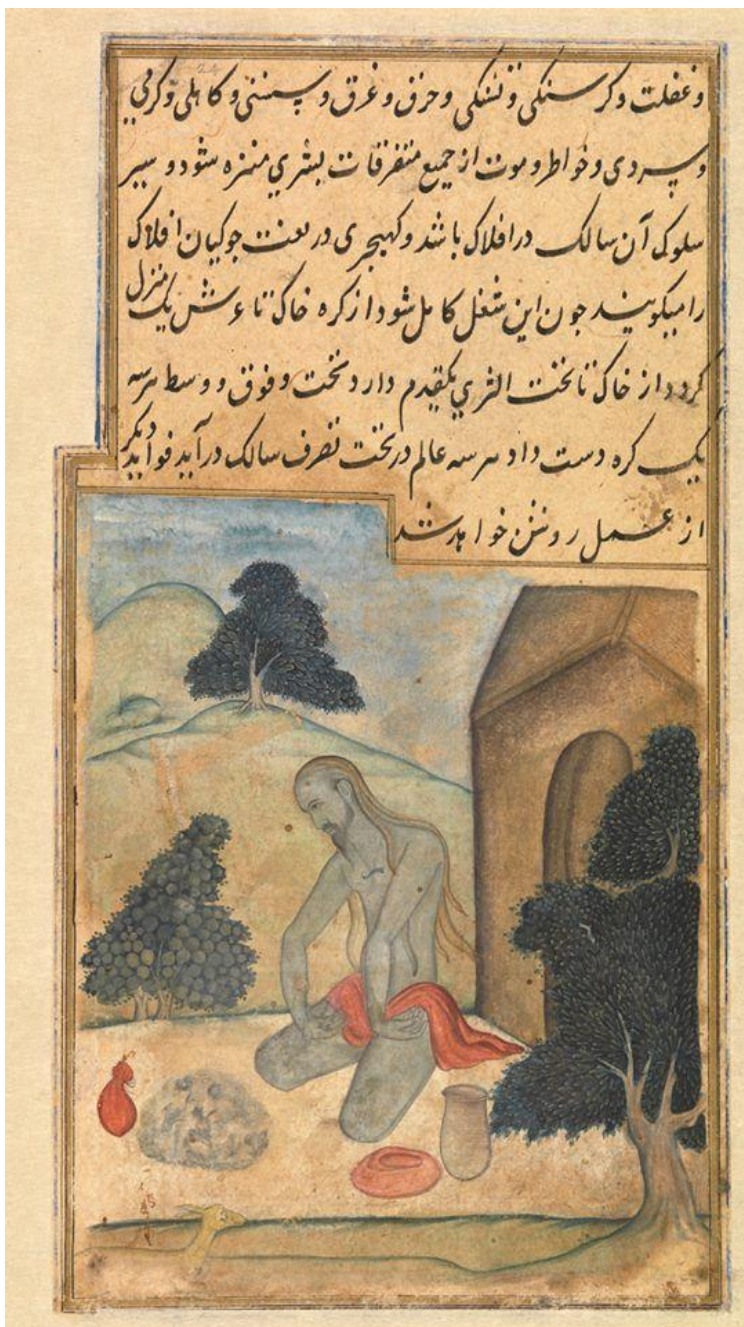 و غفلت و کرسنکی و تشنکی و حرق و غرق و سستی و کاهلی و کرمی
و سردی و خواطر و موت از جمیع متفرقات بشری منزه شود و سیر
سلوک آن سالک در افلاک باشد و کهیجری در لغت جوکیان افلاک
را میکویند جون این شغل کامل شود از کره خاک تا عرش یک منزل
کردد از خاک تا تخت الثری یکقدم دارد تخت و فوق و وسط هر سه
یک کره دست داد هر سه عالم در تخت تصرف سالک درآید فواید دیکر
از عمل روشن خواهد شد